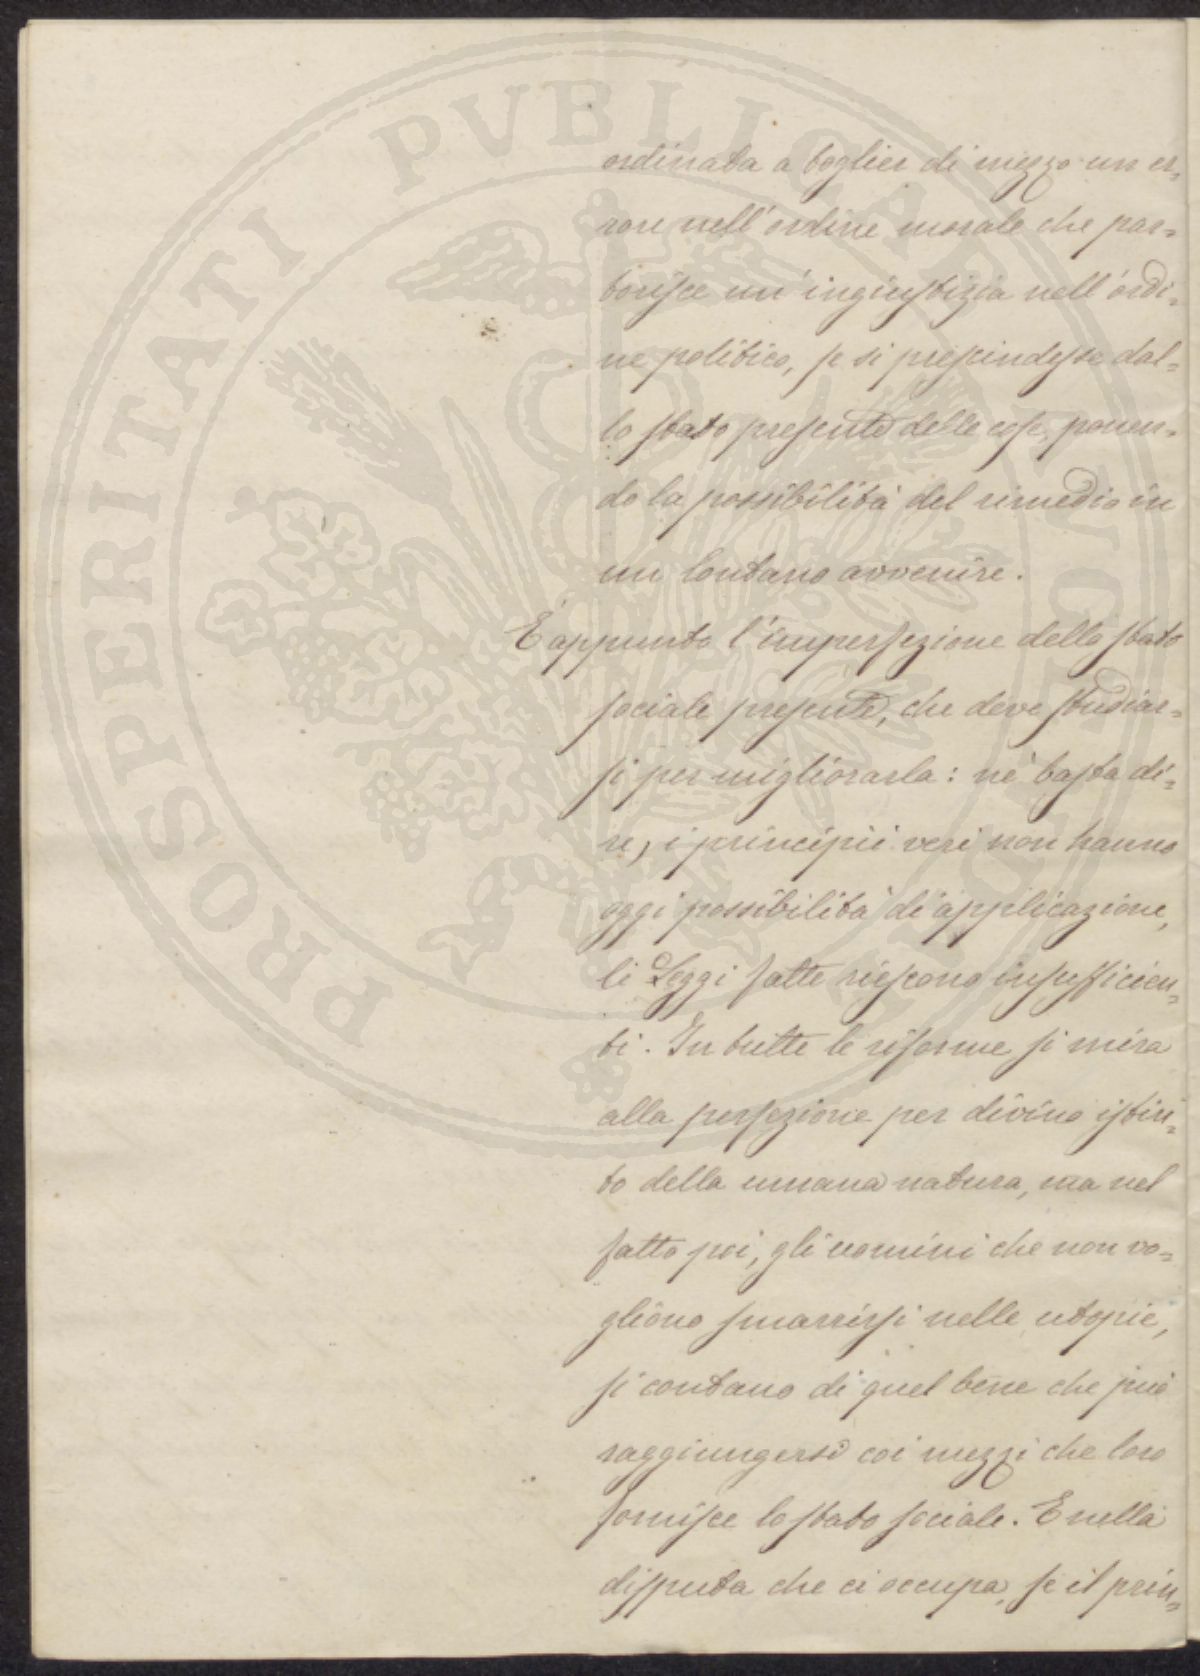 PROSPERITATI PVBLICAE
ordinata a toglier di mezzo un er=
rore nell'ordine morale che par=
torisce un'ingiustizia nell'ordi=
ne politico, se si prescindesse dal=
lo stato presente delle cose, ponen=
do la possibilità del rimedio in
un lontano avvenire.
È appunto l'imperfezione dello stato
sociale presente, che deve studiar=
si per migliorarla: nè basta di=
re, i principii veri non hanno
oggi possibilità di applicazione,
le Leggi fatte riescono insufficien=
ti. In tutte le riforme si mira
alla perfezione per divino istin=
to della umana natura, ma nel
fatto poi, gli uomini che non vo=
gliono smarrirsi nelle utopie,
si contano di quel bene che può
raggiungersi coi mezzi che loro
fornisce lo stato sociale. E nella
disputa che ci occupa, se il prin=